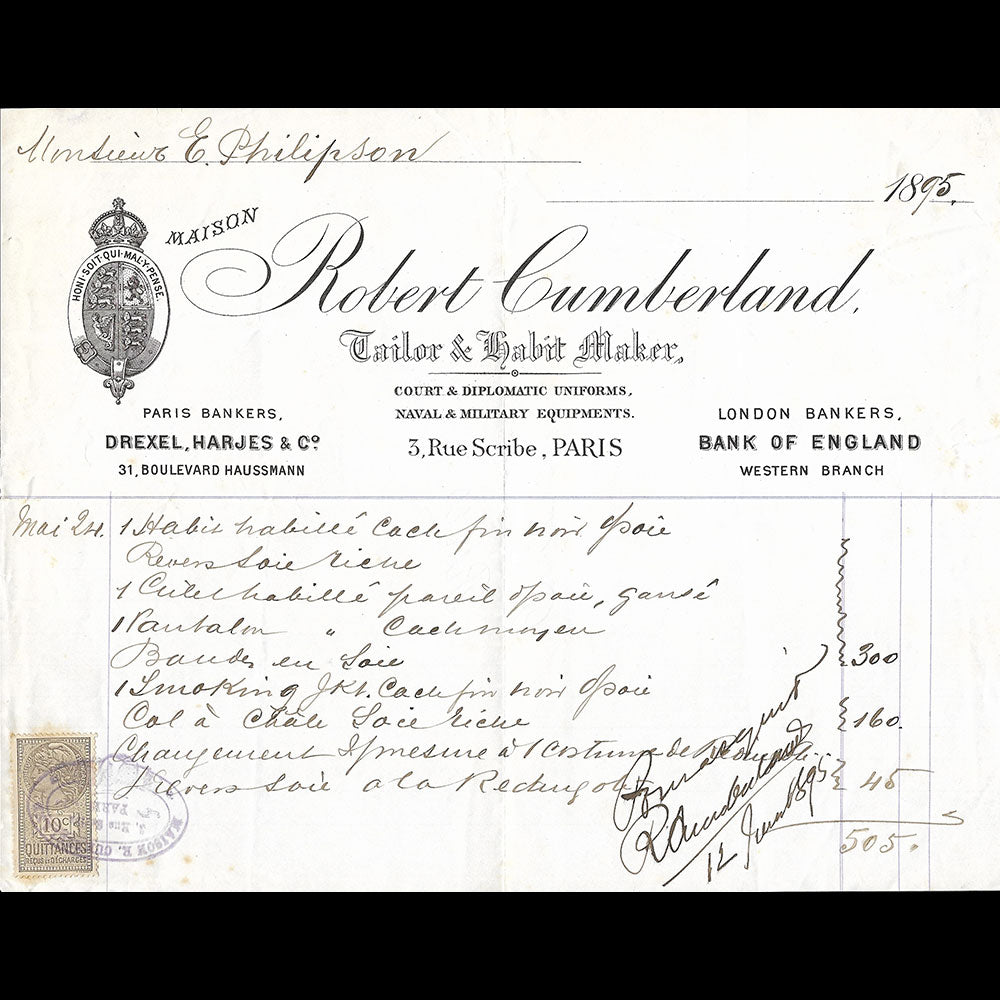 Monsieur E. Philipson
1895.
MAISON
HONI·SOIT·QUI·MAL·Y·PENSE.
Robert Cumberland,
Tailor & Habit Maker,
COURT & DIPLOMATIC UNIFORMS,
NAVAL & MILITARY EQUIPMENTS.
3, Rue Scribe, PARIS
PARIS BANKERS,
DREXEL, HARJES & Cº
31, BOULEVARD HAUSSMANN
LONDON BANKERS,
BANK OF ENGLAND
WESTERN BRANCH
Mai 24. 1 Habit habillé Cach fin noir Soie
Revers Soie riche
1 Gilet habillé pareil Soie, gansé
1 Pantalon " Cach moyen
Bandes en Soie 300
1 Smoking Jkt. Cach fin noir Soie
Col à Châle Soie riche 160.
Changement mesure à 1 Costume de
Revers Soie a la Redingote 45
505.
Pour acquit
R Cumberland
12 Juin 1895
10c
QUITTANCES
REÇUS ET DÉCHARGES
MAISON R.
3, Rue